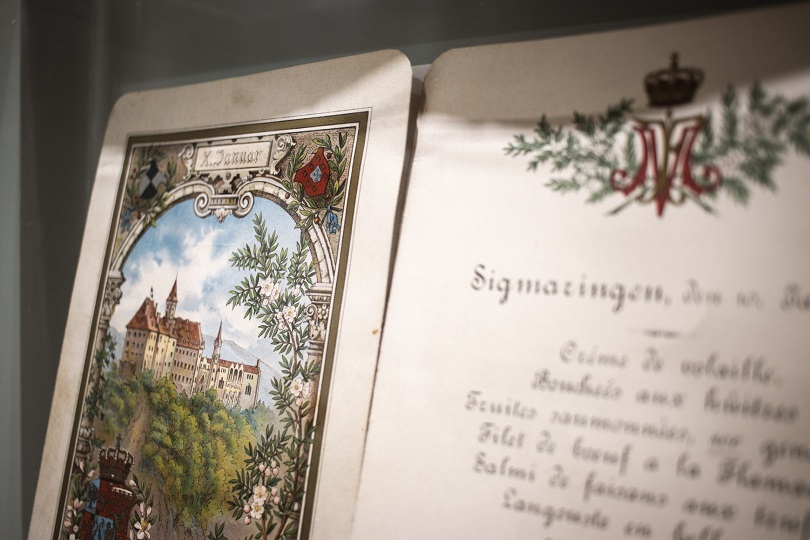 X. Januar
Sigmaringen, den 10.
Crême de volaille.
Bouchées aux huîtres
Truites saumonnées,
Filet de bœuf à la
Salmi de faisans aux
Langouste en